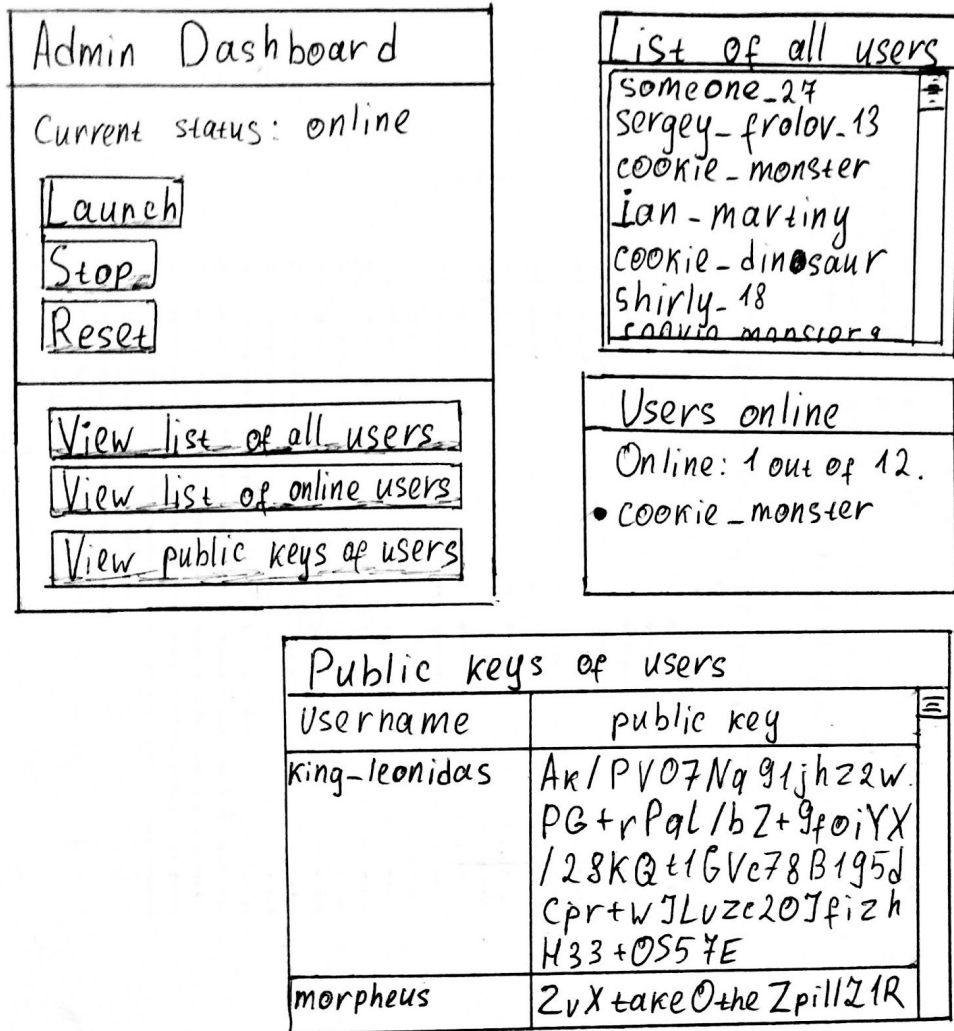 Admin Dashboard
Current status: online
Launch
Stop
Reset
View list of all users
View list of online users
View public keys of users
List of all users
someone_27
sergey_frolov_13
cookie_monster
ian_martiny
cookie_dinosaur
shirly_18
Users online
Online: 1 out of 12.
• cookie_monster
Public keys of users
Username public key
king_leonidas Ak/PVO7Nq91jhz2w.
PG+rPql/bZ+9foiYX
/28KQt1GVc78B195d
Cpr+wJLvzc20Jfizh
H33+OS57E
morpheus ZvXtake0theZpillZ1R